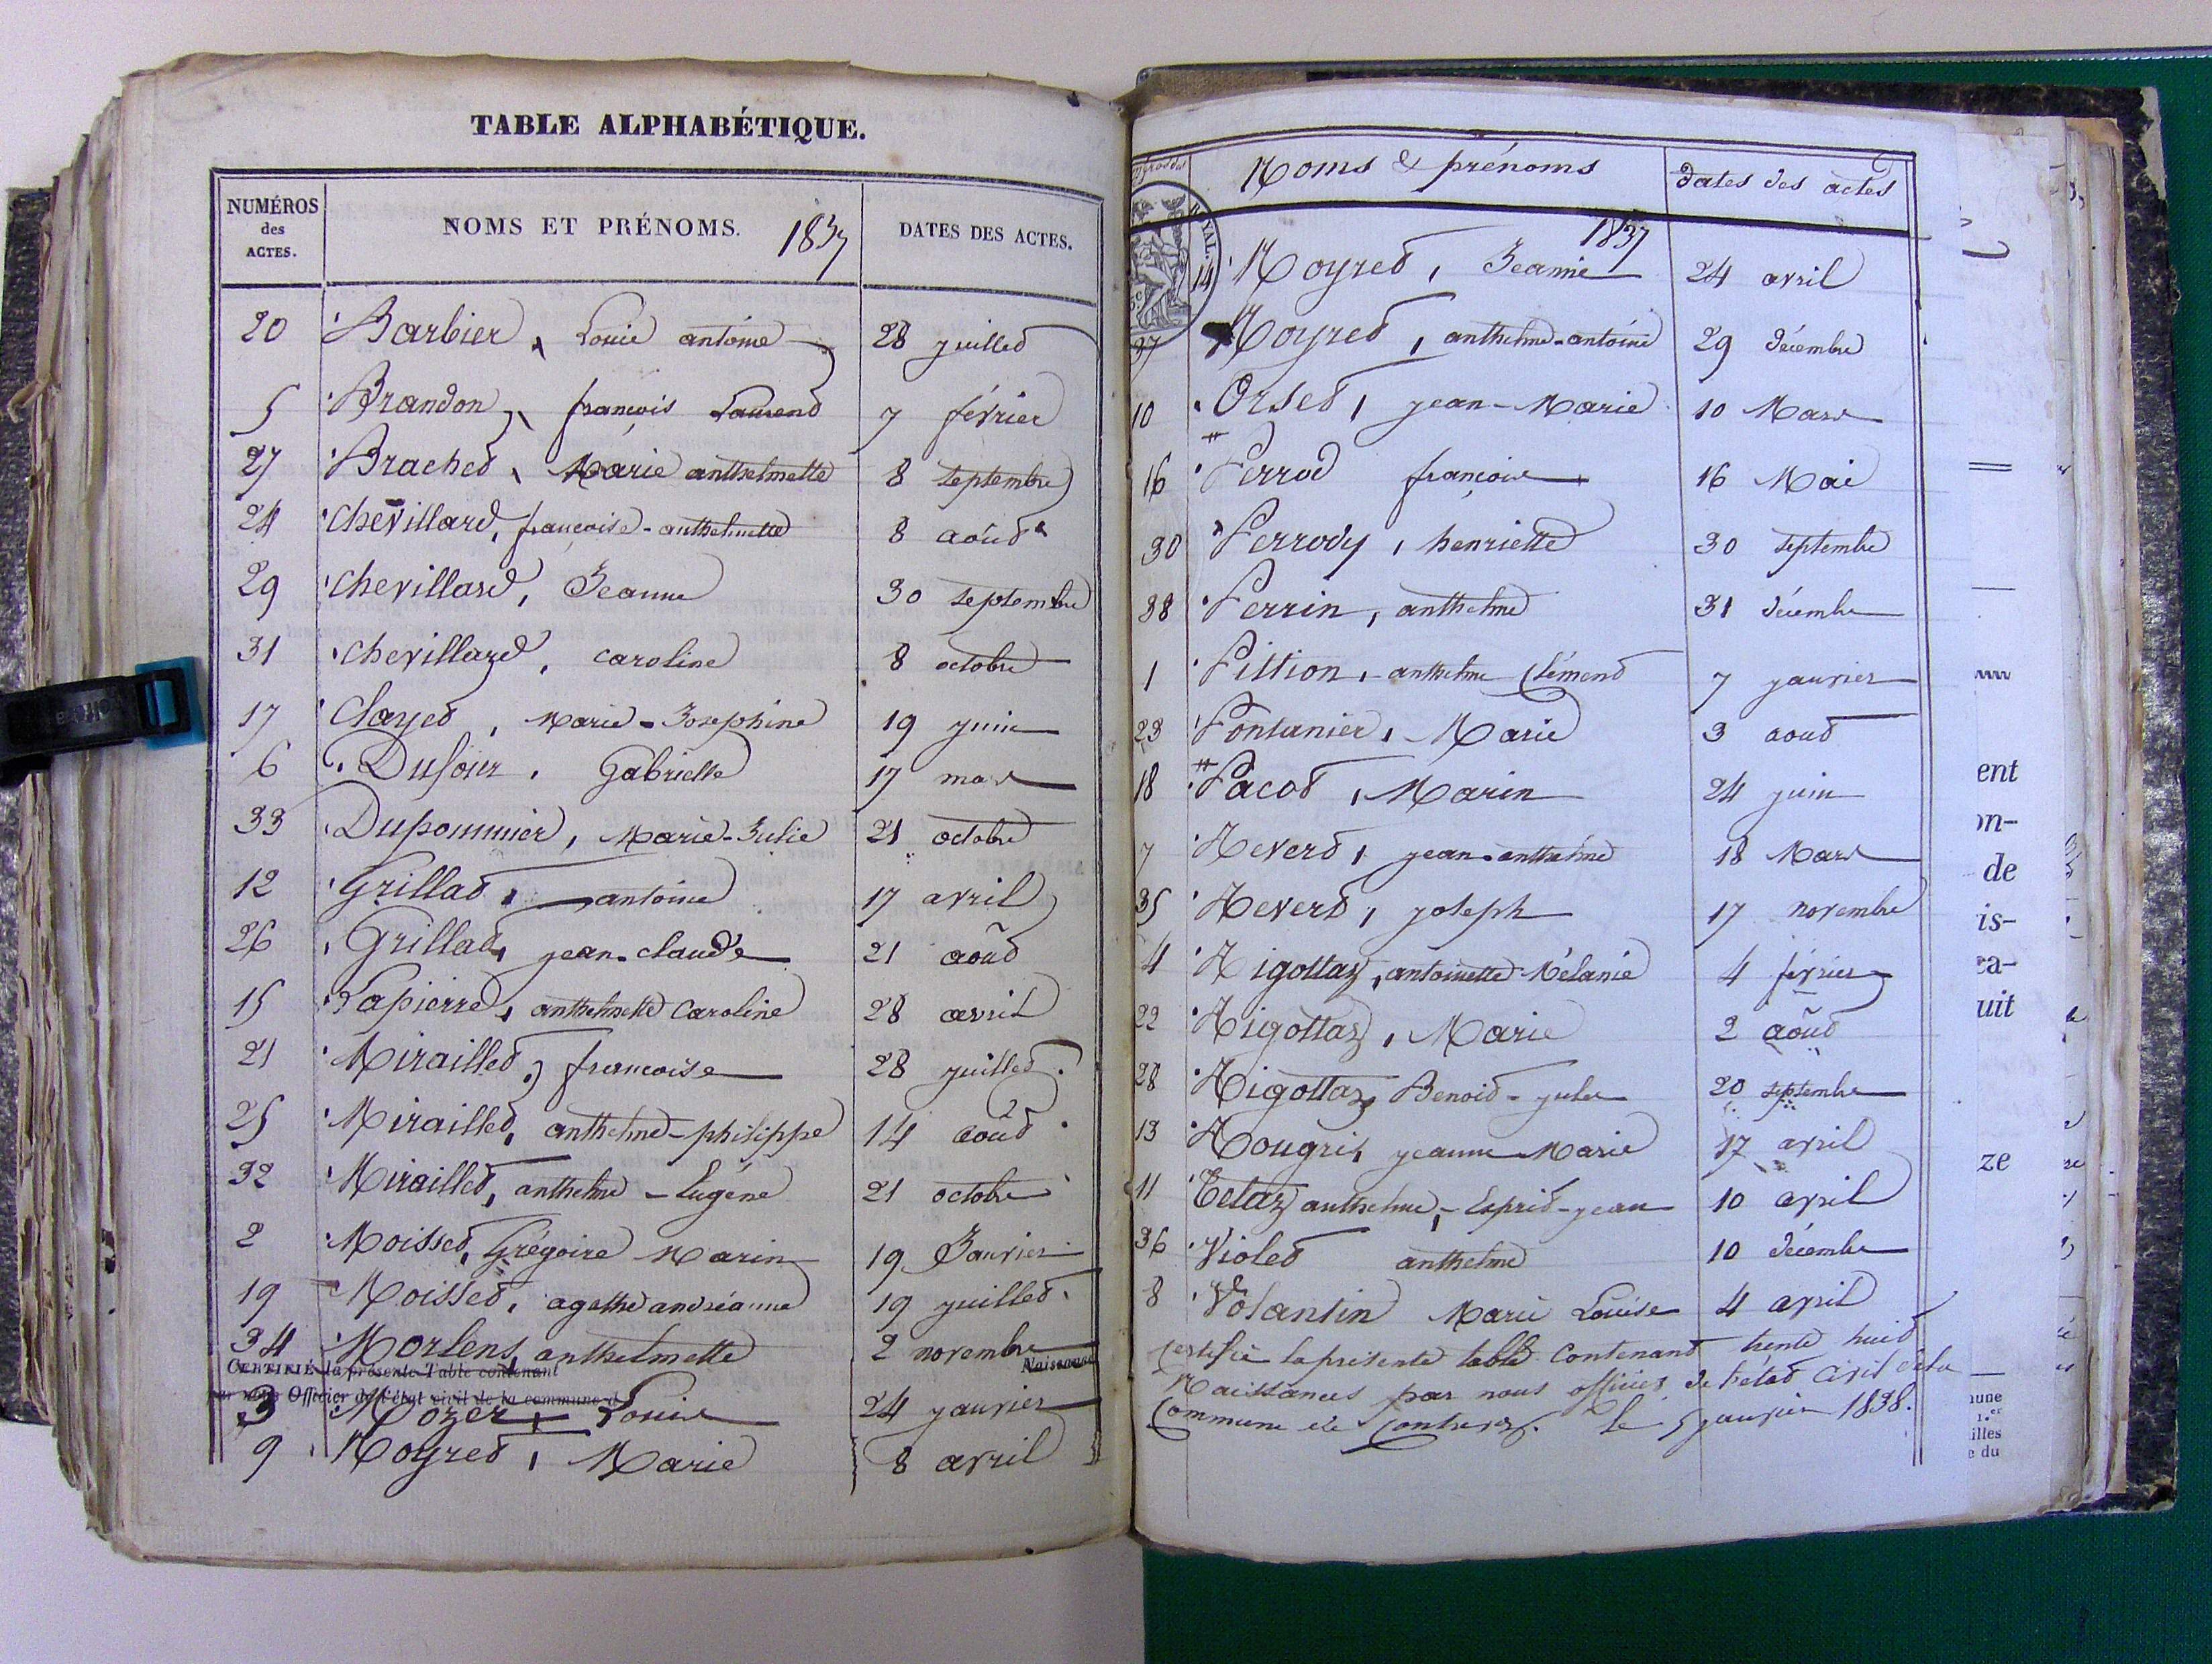 TABLE ALPHABÉTIQUE.
NUMÉROS des ACTES. NOMS ET PRÉNOMS. 1837 DATES DES ACTES.
20 Barbier, Louis antoine 28 juillet
5 Brandon, françois Laurent 7 février
27 Brachet, Marie anthelmette 8 septembre
24 Chevillard, françoise-anthelmette 8 août
29 Chevillard, Jeanne 30 septembre
31 Chevillard, caroline 8 octobre
17 Clayet, Marie-Josephine 19 juin
6 Dufour, Gabrielle 17 mars
33 Dupommier, Marie-Julie 21 octobre
12 Grillat, antoine 17 avril
26 Grillat, jean-claude 21 août
15 Lapierre, anthelmette Caroline 28 avril
21 Miraillet, françoise 28 juillet
25 Miraillet, anthelme-philippe 14 août
32 Miraillet, anthelme-Eugéne 21 octobre
2 Moisset, Grégoire Marin 19 Janvier
19 Moisset, agathe andréanne 19 juillet
34 Morlens, anthelmette 2 novembre
CERTIFIÉ la présente Table contenant Naissances
par nous Officier de l'état civil de la commune d
3 Mozer, Louise 24 janvier
9 Noyret, Marie 8 avril
Noms & prénoms dates des actes
1837
ROYAL
14 Noyret, Jeanne 24 avril
37 Noyret, anthelme-antoine 29 décembre
10 Orset, jean-Marie 10 Mars
16 Perrod françoise 16 Mai
30 Perrody, henriette 30 septembre
38 Perrin, anthelme 31 décembre
1 Pittion, anthelme Clément 7 janvier
23 Pontanier, Marie 3 aout
18 Pacot, Marin 24 juin
7 Revert, jean-anthelme 18 Mars
35 Revert, joseph 17 novembre
4 Rigottaz, antoinette Mélanie 4 février
22 Rigottaz, Marie 2 août
28 Rigottaz, Benoit-jules 20 septembre
13 Rougris, jeanne Marie 17 avril
11 Tetaz anthelme,-Esprit-jean 10 avril
36 Violet anthelme 10 décembre
8 Volantin Marie Louise 4 avril
Certifié la présente table Contenant trente huit
Naissances par nous officier de l'état Civil de la
Commune de Contrevoz. Le 5 janvier 1838.
ent
on-
de
is-
ca-
uit
ze
mune
1.er
illes
e du